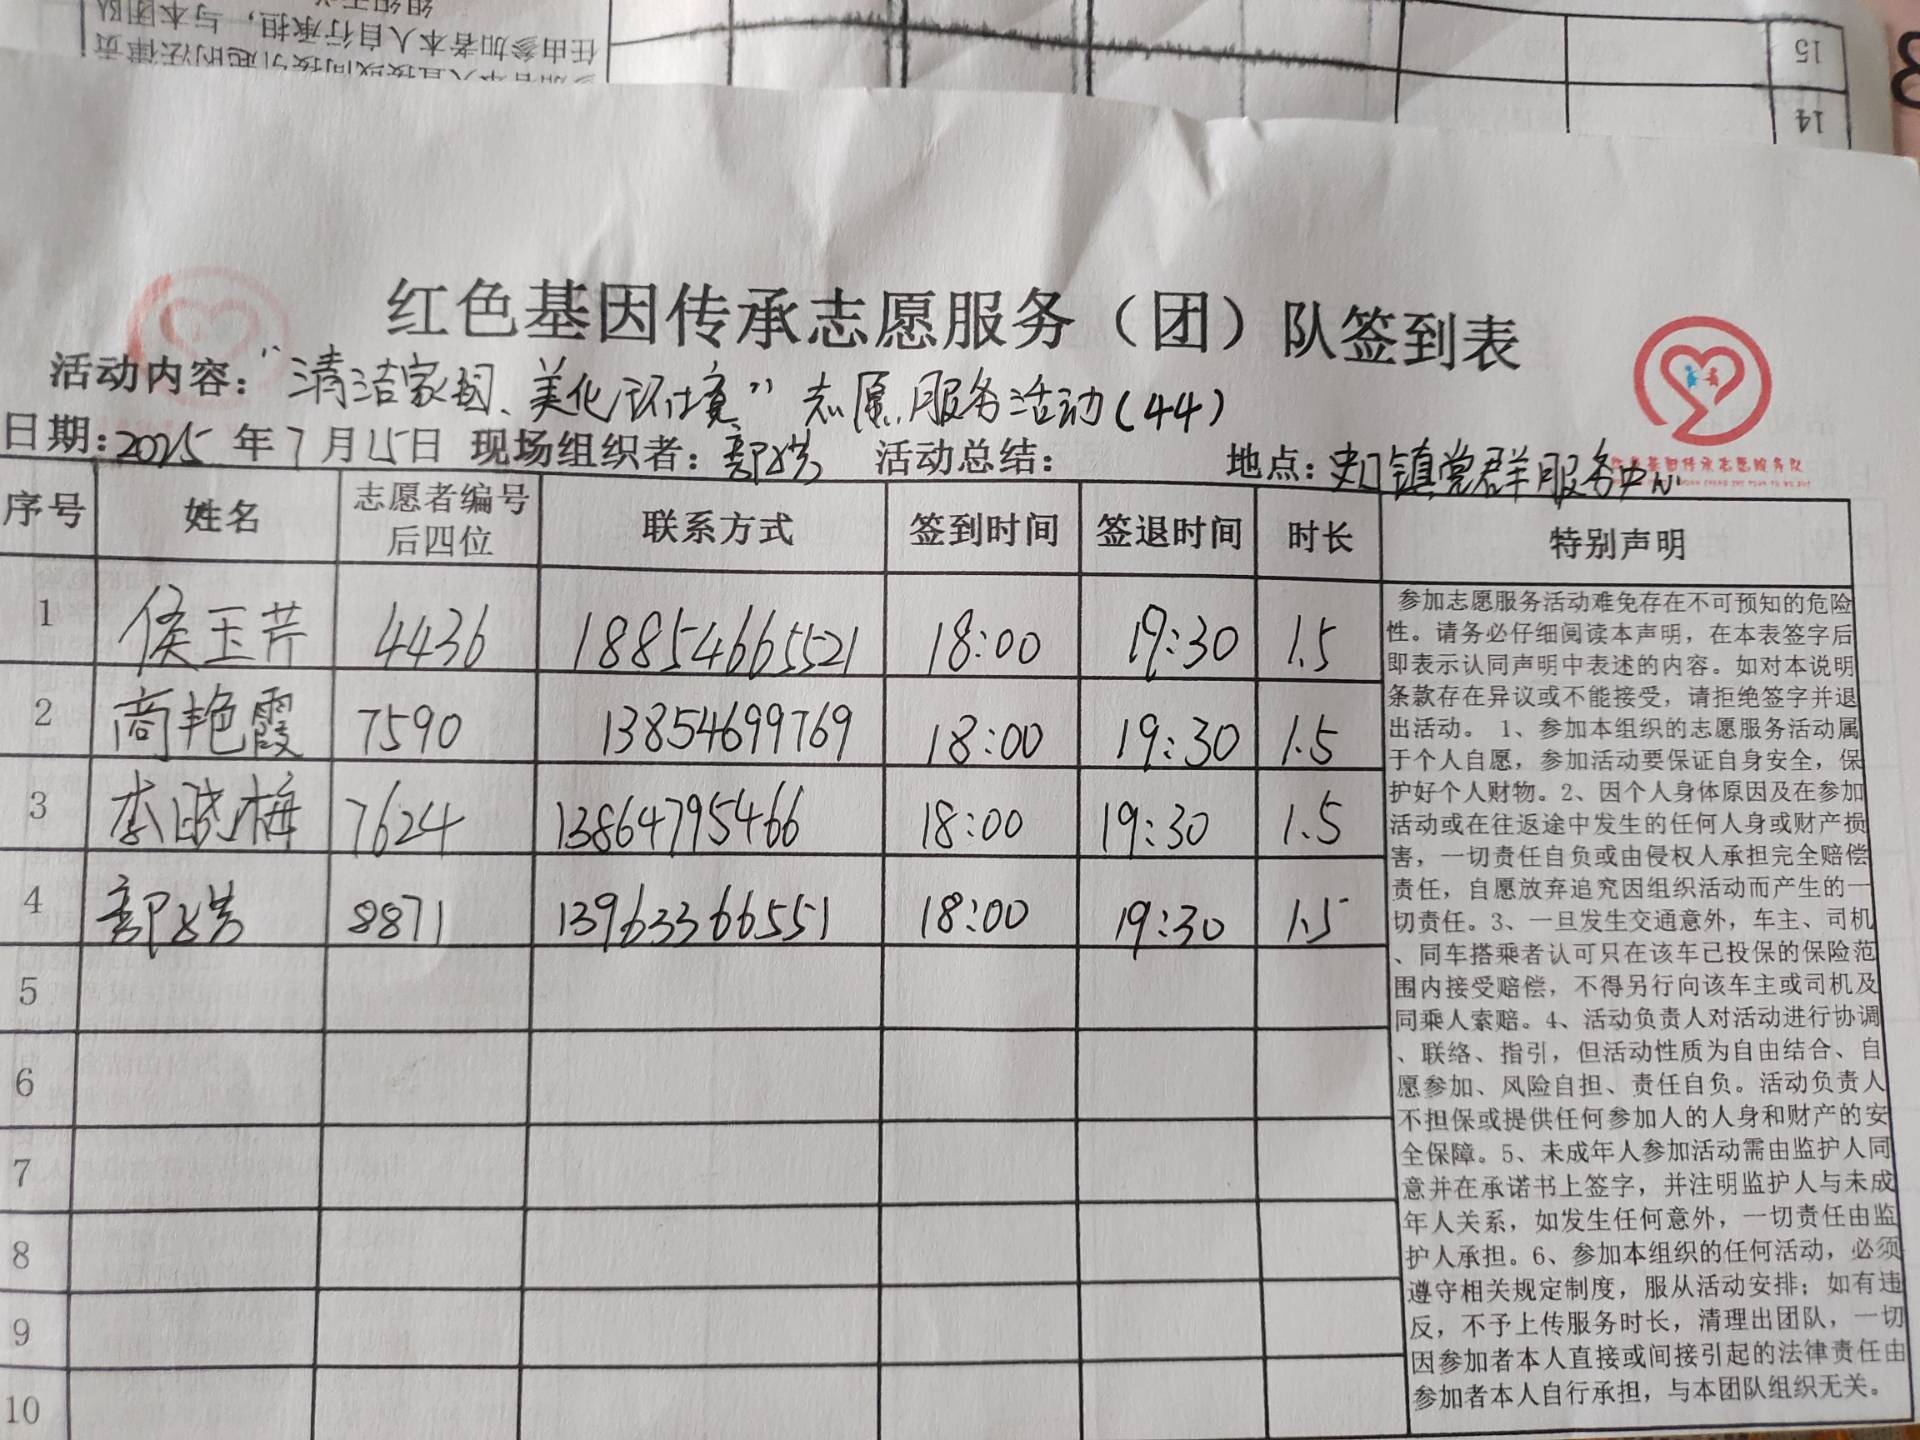 15
14
红色基因传承志愿服务（团）队签到表
活动内容："清洁家园、美化环境"志愿服务活动(44)
日期:2025年7月15日 现场组织者: 活动总结: 地点:史口镇党群服务中心
红色基因传承志愿服务队
序号 姓名 志愿者编号后四位 联系方式 签到时间 签退时间 时长 特别声明
1 侯玉芹 4436 18854665521 18:00 19:30 1.5
2 商艳霞 7590 13854699769 18:00 19:30 1.5
3 李晓梅 7624 13864795466 18:00 19:30 1.5
4 8871 13963366551 18:00 19:30 1.5
5
6
7
8
9
10
参加志愿服务活动难免存在不可预知的危险
性。请务必仔细阅读本声明，在本表签字后
即表示认同声明中表述的内容。如对本说明
条款存在异议或不能接受，请拒绝签字并退
出活动。 1、参加本组织的志愿服务活动属
于个人自愿，参加活动要保证自身安全，保
护好个人财物。2、因个人身体原因及在参加
活动或在往返途中发生的任何人身或财产损
害，一切责任自负或由侵权人承担完全赔偿
责任，自愿放弃追究因组织活动而产生的一
切责任。3、一旦发生交通意外，车主、司机
、同车搭乘者认可只在该车已投保的保险范
围内接受赔偿，不得另行向该车主或司机及
同乘人索赔。4、活动负责人对活动进行协调
、联络、指引，但活动性质为自由结合、自
愿参加、风险自担、责任自负。活动负责人
不担保或提供任何参加人的人身和财产的安
全保障。5、未成年人参加活动需由监护人同
意并在承诺书上签字，并注明监护人与未成
年人关系，如发生任何意外，一切责任由监
护人承担。6、参加本组织的任何活动，必须
遵守相关规定制度，服从活动安排；如有违
反，不予上传服务时长，清理出团队，一切
因参加者本人直接或间接引起的法律责任由
参加者本人自行承担，与本团队组织无关。